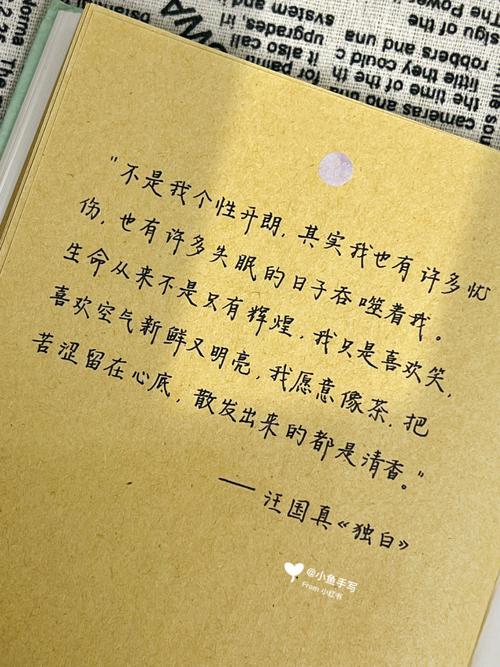 "不是我个性开朗,其实我也有许多忧
伤,也有许多失眠的日子吞噬着我。
生命从来不是又有辉煌,我只是喜欢笑,
喜欢空气新鲜又明亮,我愿意像茶,把
苦涩留在心底,散发出来的都是清香。"
——汪国真《独白》
@小鱼手写
From 小红书
cameras and one for
the time of the
little they could c
robbers and una
sign of the
the Power
it also call
upgrades. In
system
OWA
dorma
2.22
The